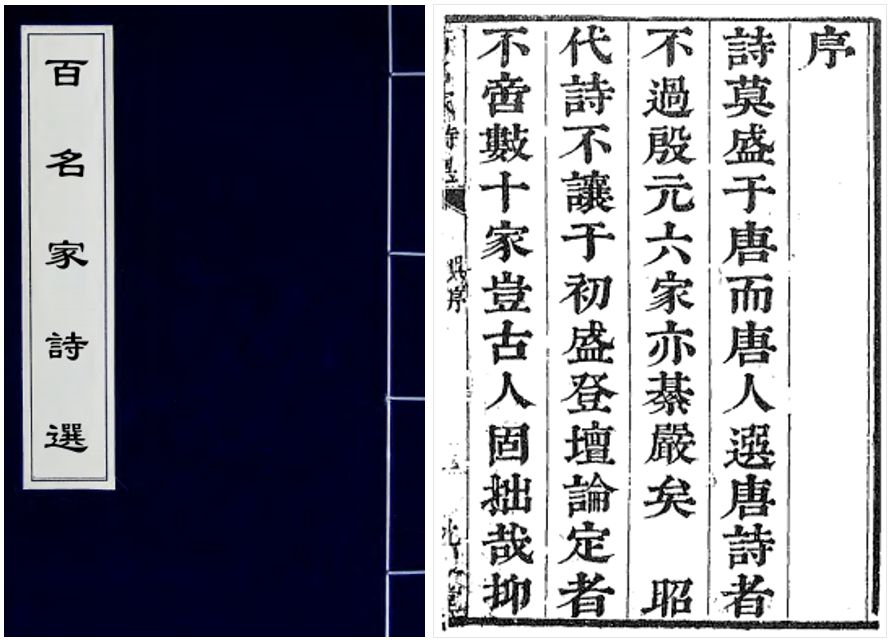 百名家詩選
序
詩莫盛于唐而唐人選唐詩者
不過殷元六家亦綦嚴矣 昭
代詩不讓于初盛登壇論定者
不啻數十家豈古人固拙哉抑